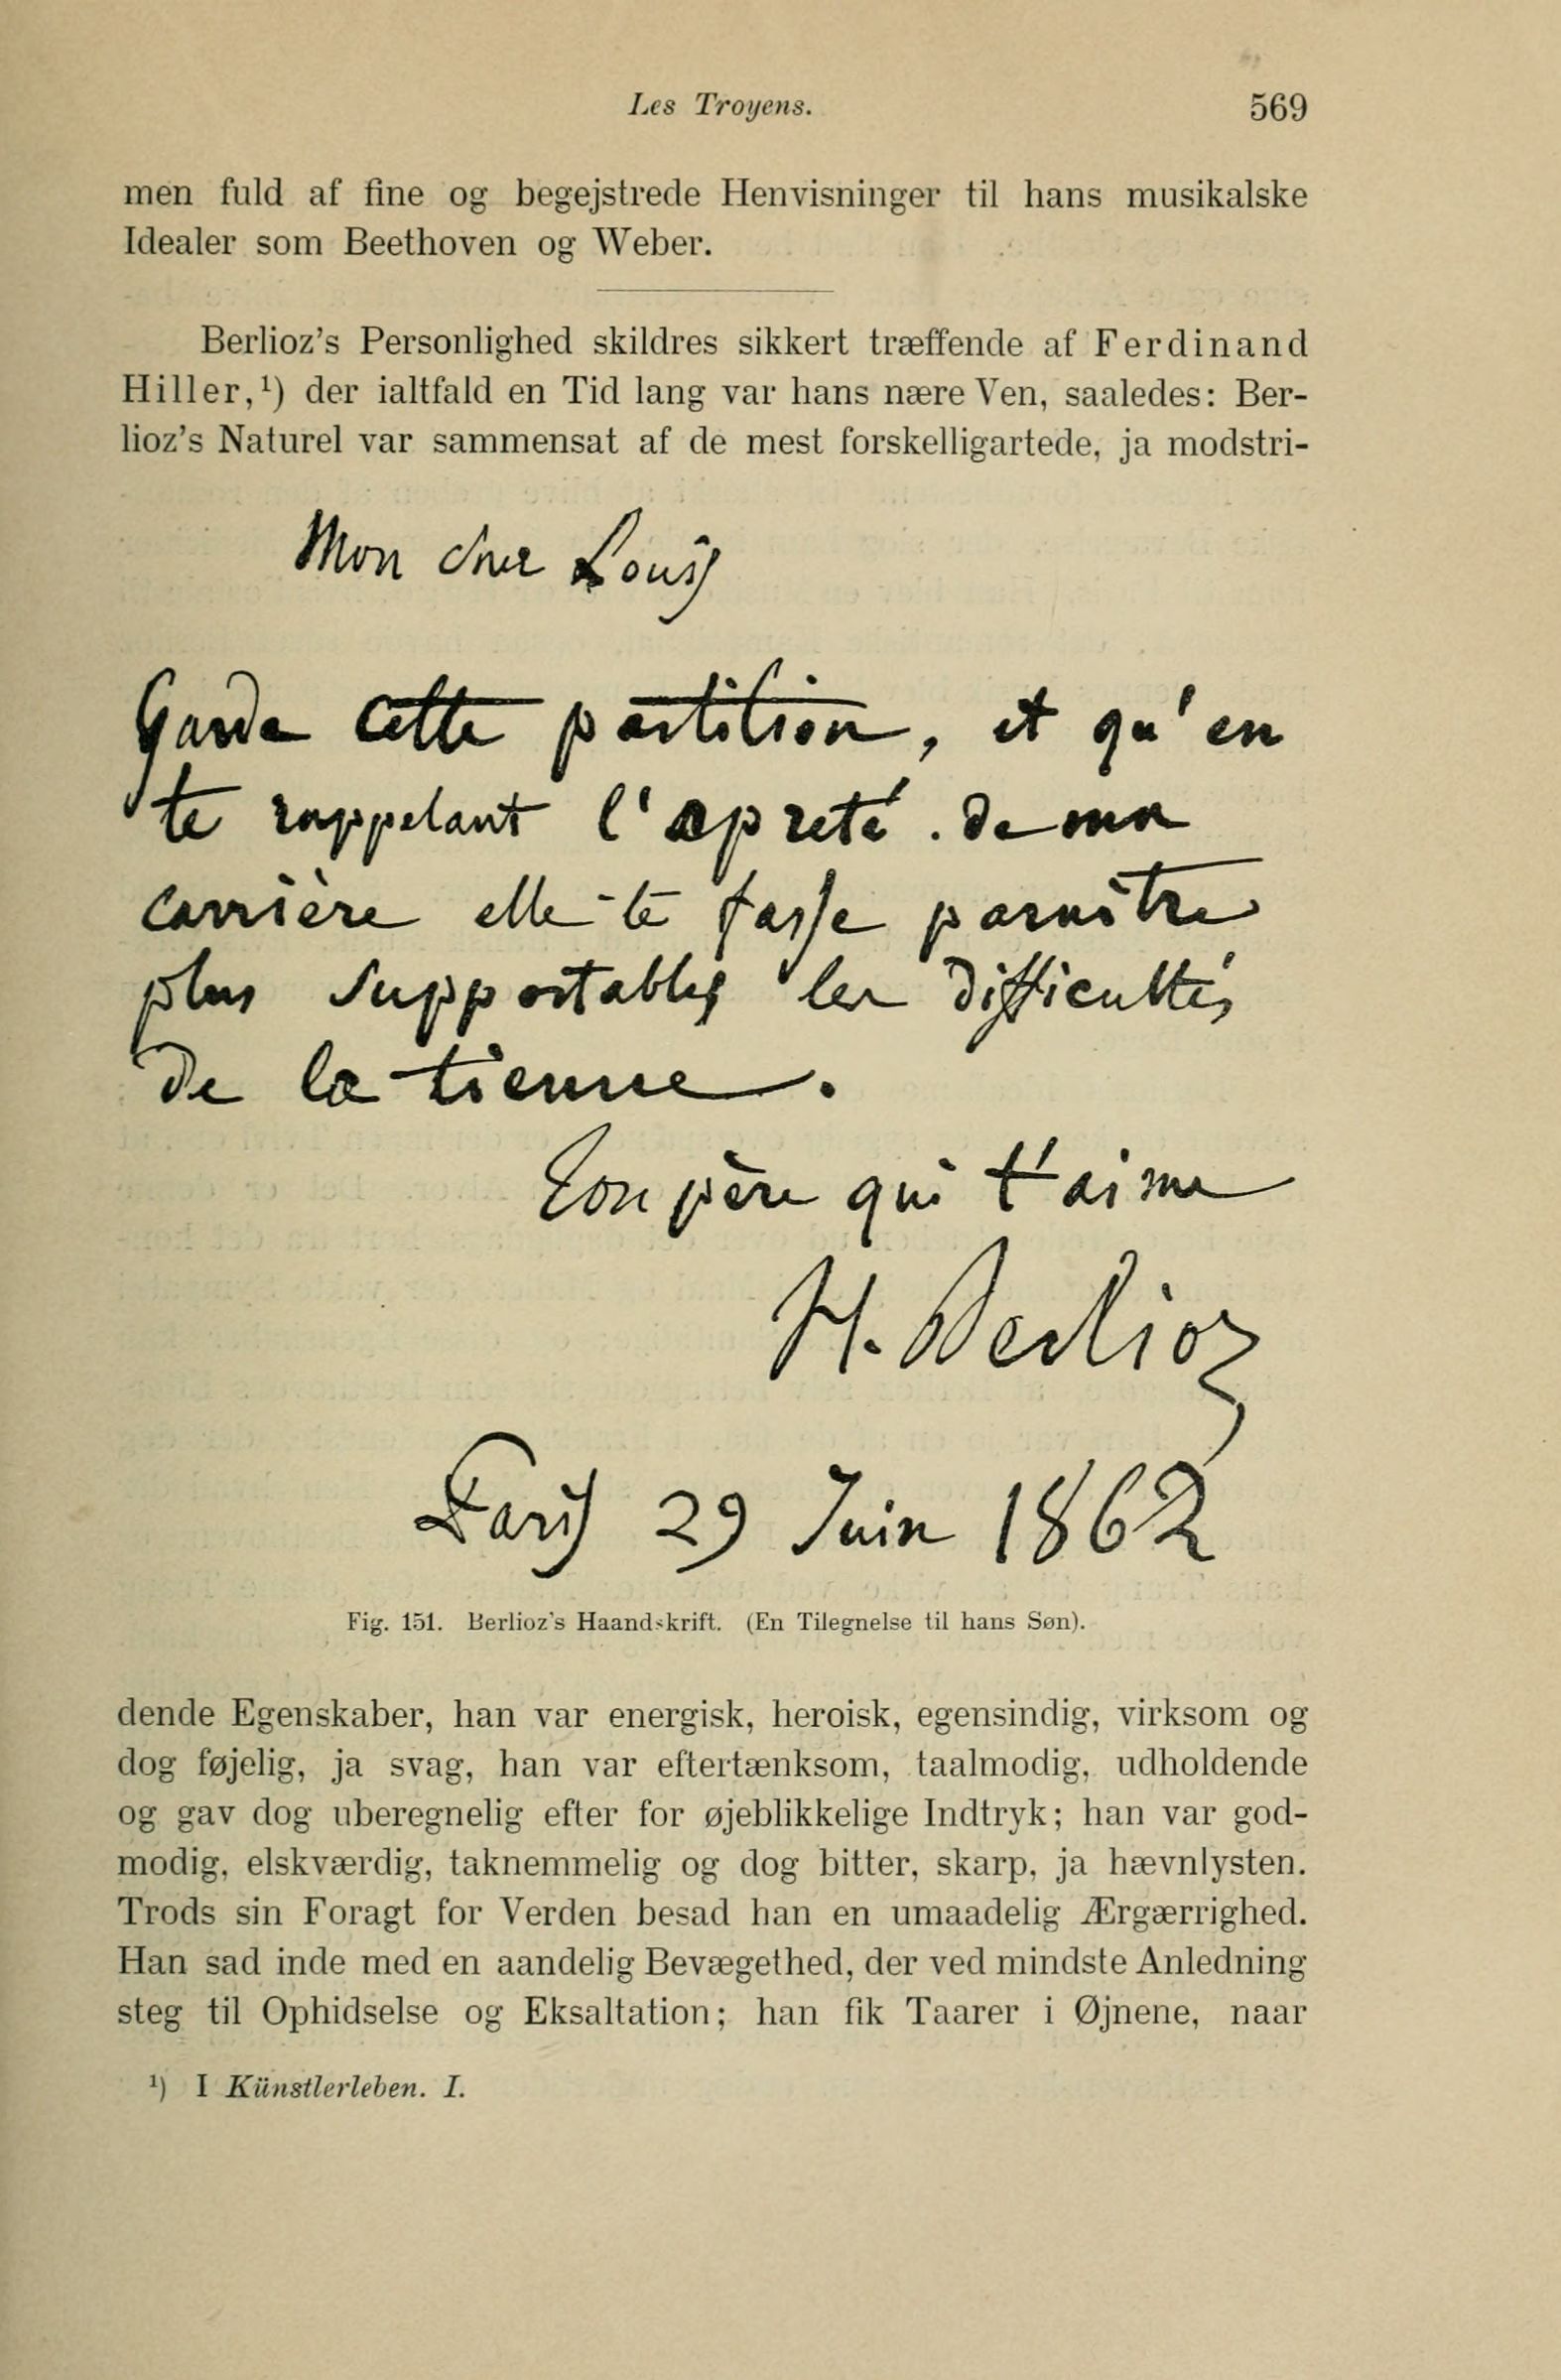 Les Troyens.
569
men fuld af fine og begejstrede Henvisninger til hans musikalske
Idealer som Beethoven og Weber.
Berlioz's Personlighed skildres sikkert træffende af Ferdinand
Hiller,¹) der ialtfald en Tid lang var hans nære Ven, saaledes: Ber-
lioz's Naturel var sammensat af de mest forskelligartede, ja modstri-
Mon cher Louis
Garde cette partition, et qu'en
te rappelant l'apreté de ma
carrière elle te fasse paraître
plus supportables les difficultés
de la tienne.
Ton père qui t'aime
H. Berlioz
Paris 29 Juin 1862
Fig. 151. Berlioz's Haandskrift. (En Tilegnelse til hans Søn).
dende Egenskaber, han var energisk, heroisk, egensindig, virksom og
dog føjelig, ja svag, han var eftertænksom, taalmodig, udholdende
og gav dog uberegnelig efter for øjeblikkelige Indtryk; han var god-
modig, elskværdig, taknemmelig og dog bitter, skarp, ja hævnlysten.
Trods sin Foragt for Verden besad han en umaadelig Ærgærrighed.
Han sad inde med en aandelig Bevægethed, der ved mindste Anledning
steg til Ophidselse og Eksaltation; han fik Taarer i Øjnene, naar
¹) I Künstlerleben. I.